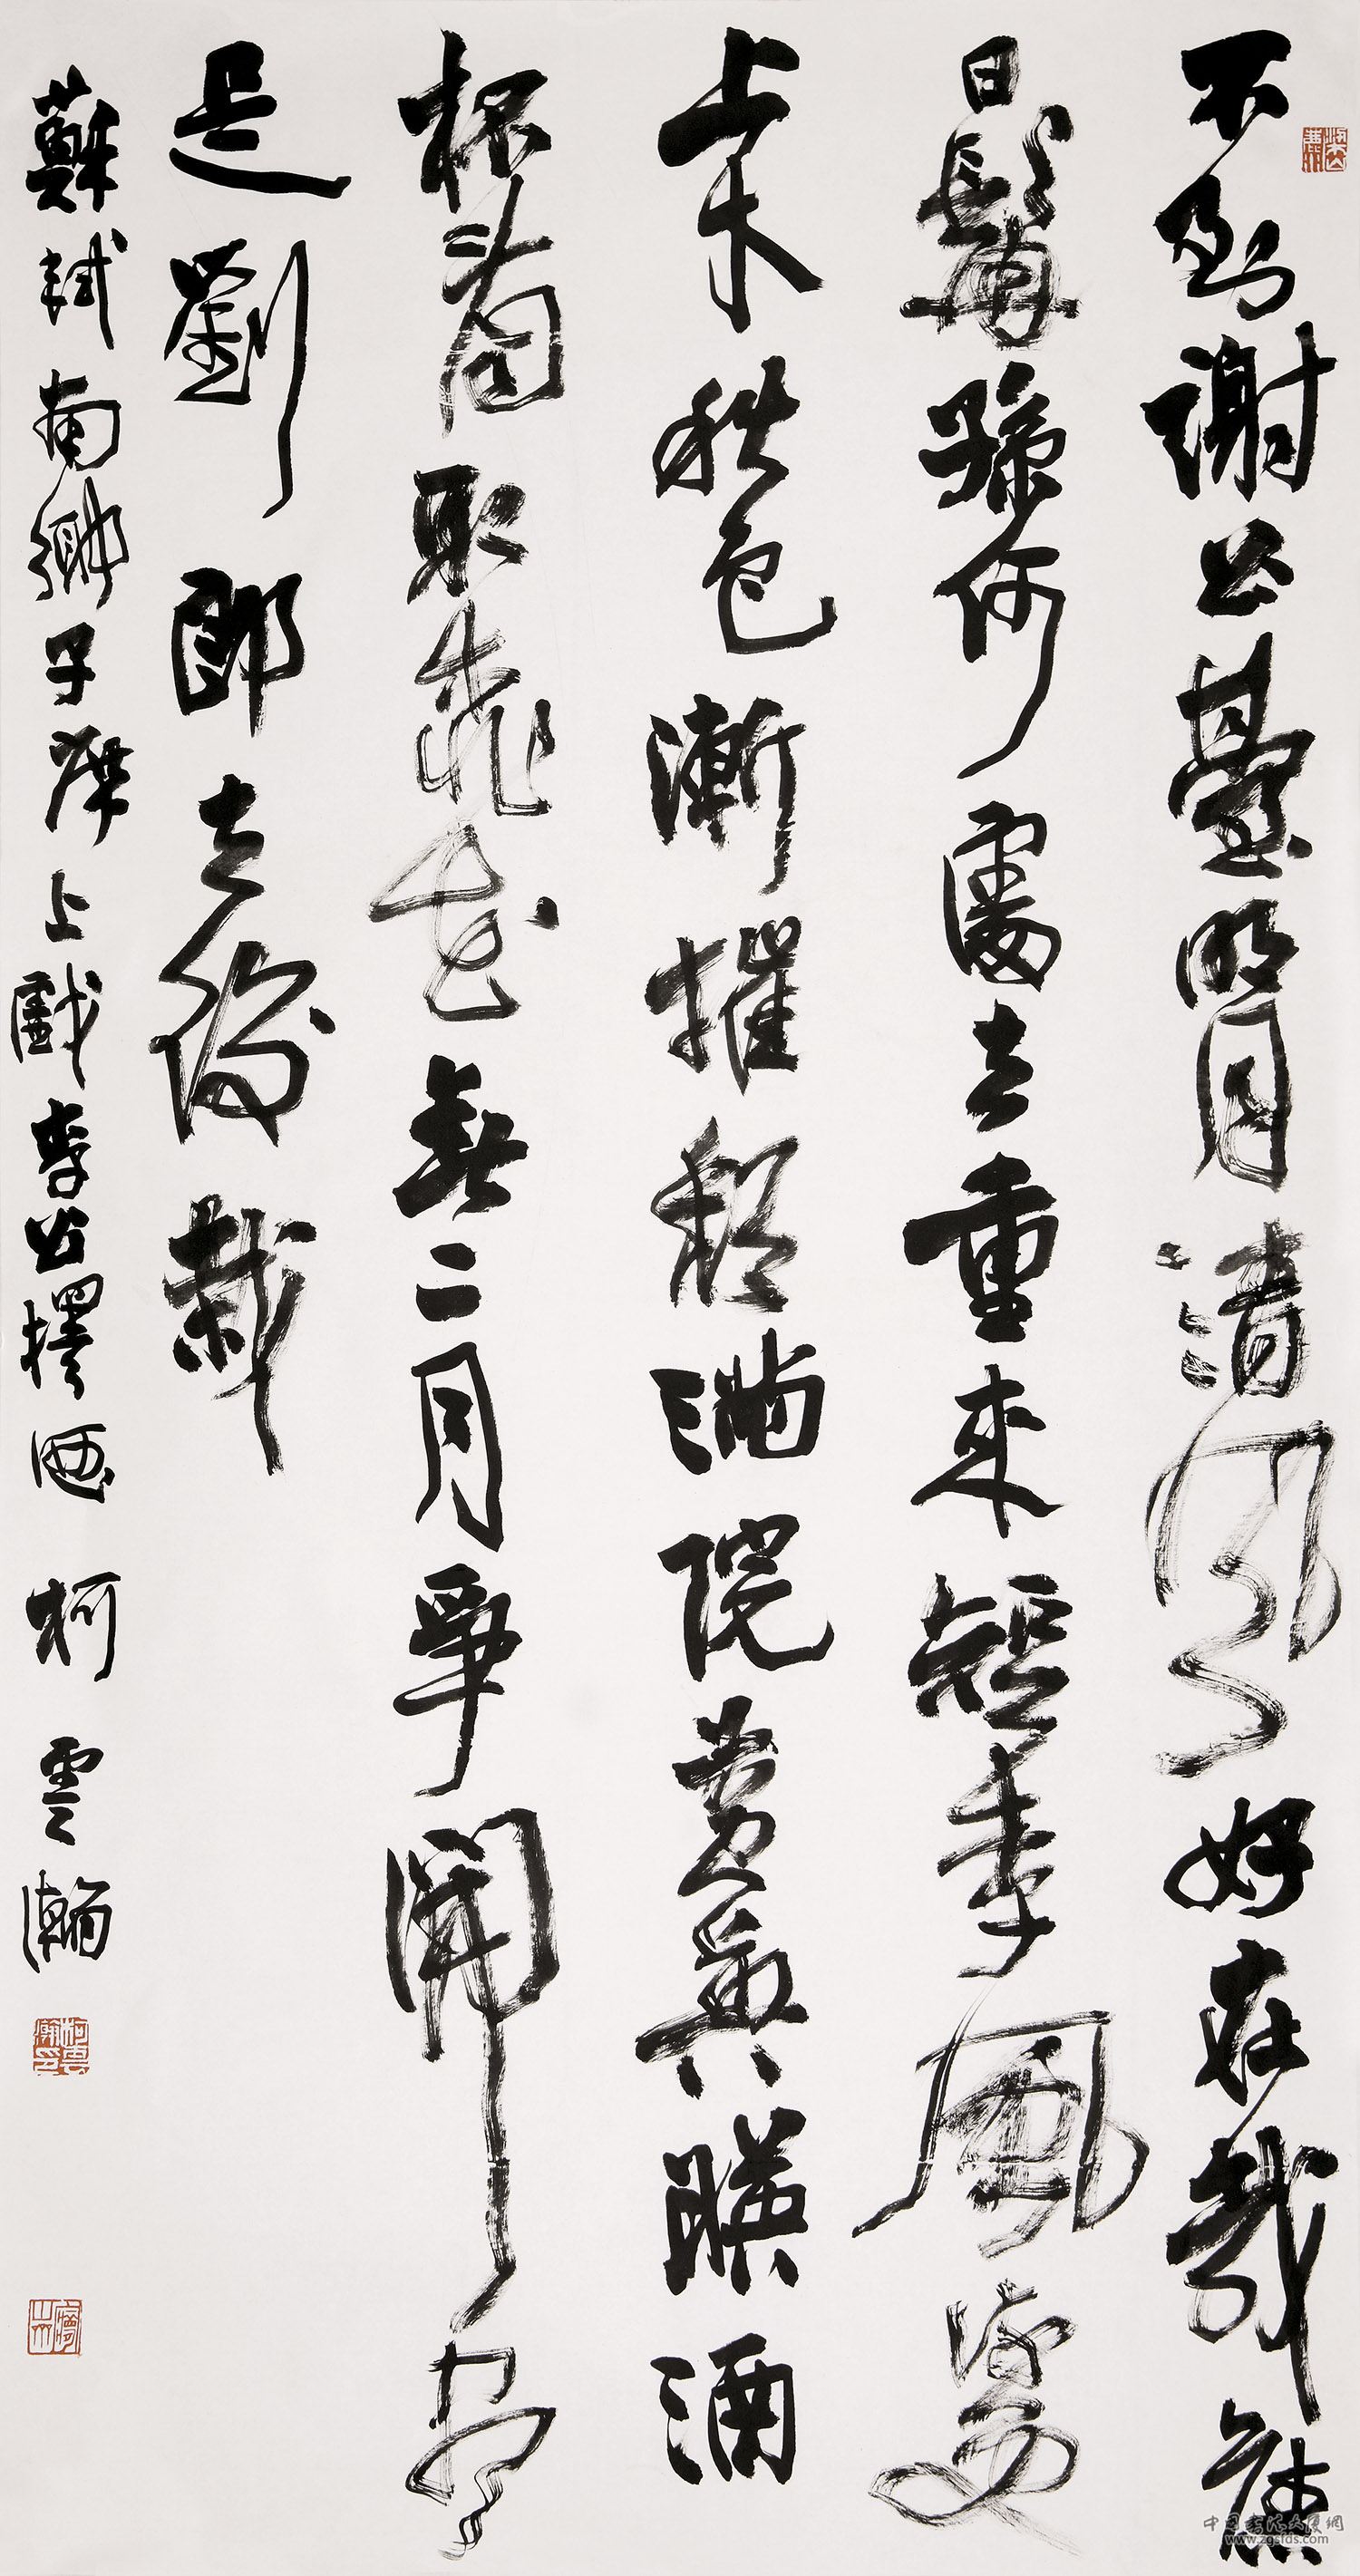 不到謝公臺明月清風好在哉舊
日髯孫何處去重來短李風流更
上才秋色漸摧頹滿院黃英暎酒
杯看取桃花春二月爭開盡
是劉郎去後栽
蘇軾南鄉子席上戲李公擇酒 柯雲瀚
柯雲瀚印
中国书法大厦網
www.zgsfds.com